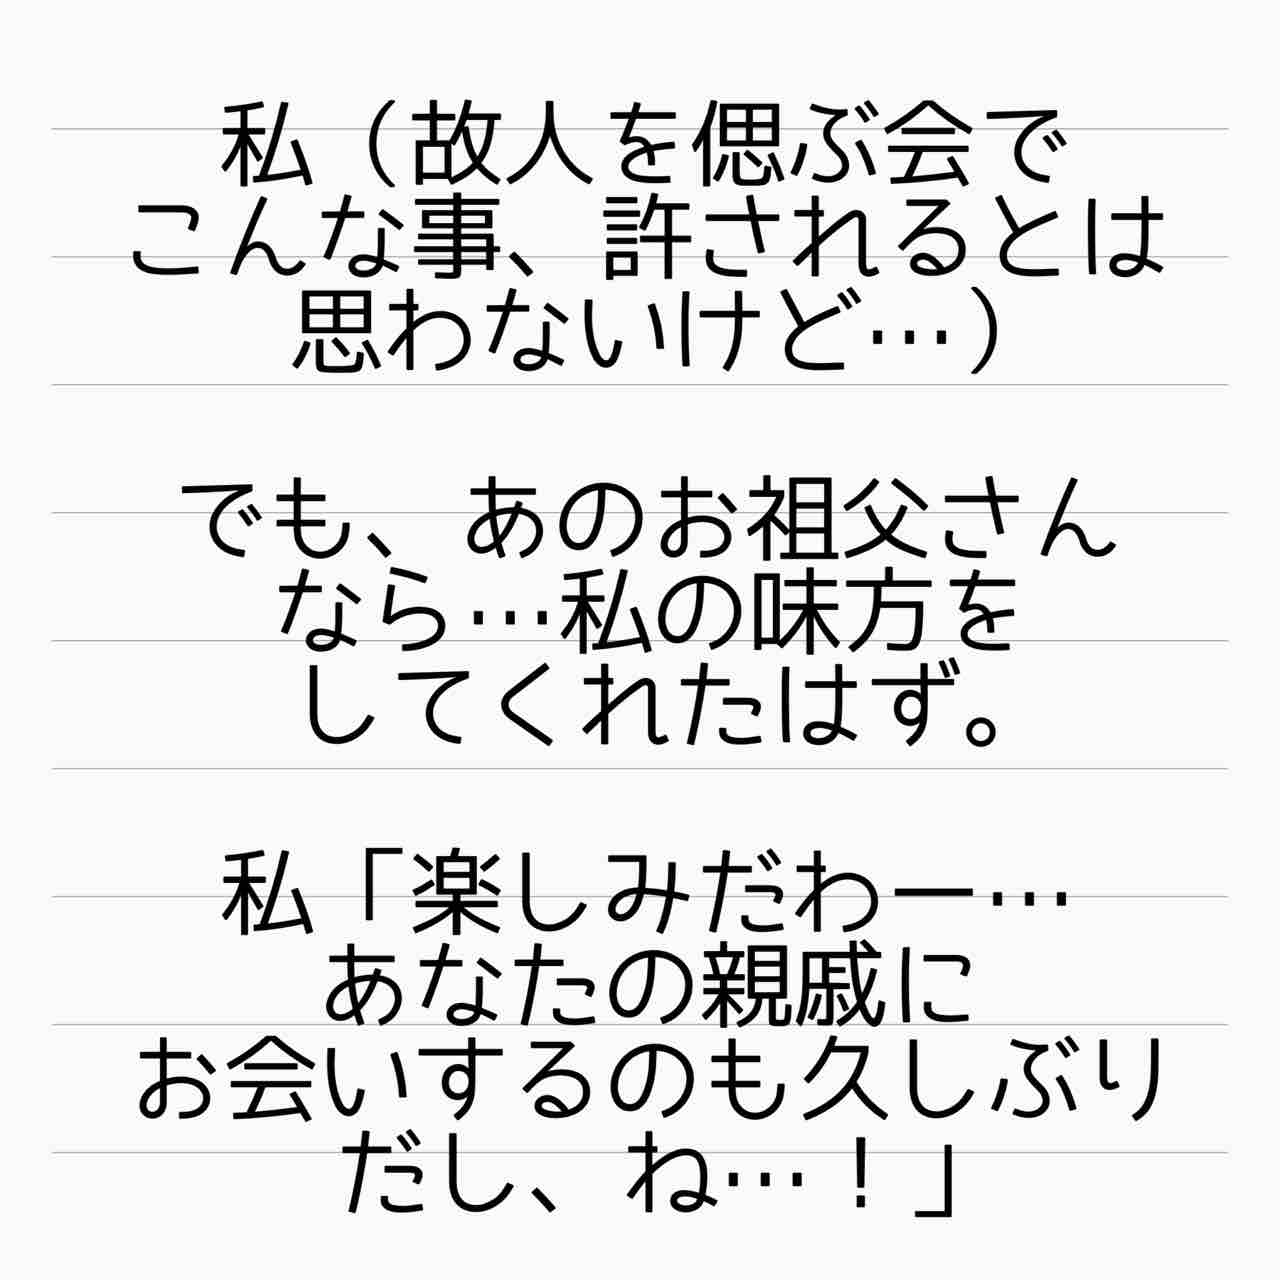 私（故人を偲ぶ会で
こんな事、許されるとは
思わないけど…）
でも、あのお祖父さん
なら…私の味方を
してくれたはず。
私「楽しみだわー…
あなたの親戚に
お会いするのも久しぶり
だし、ね…！」